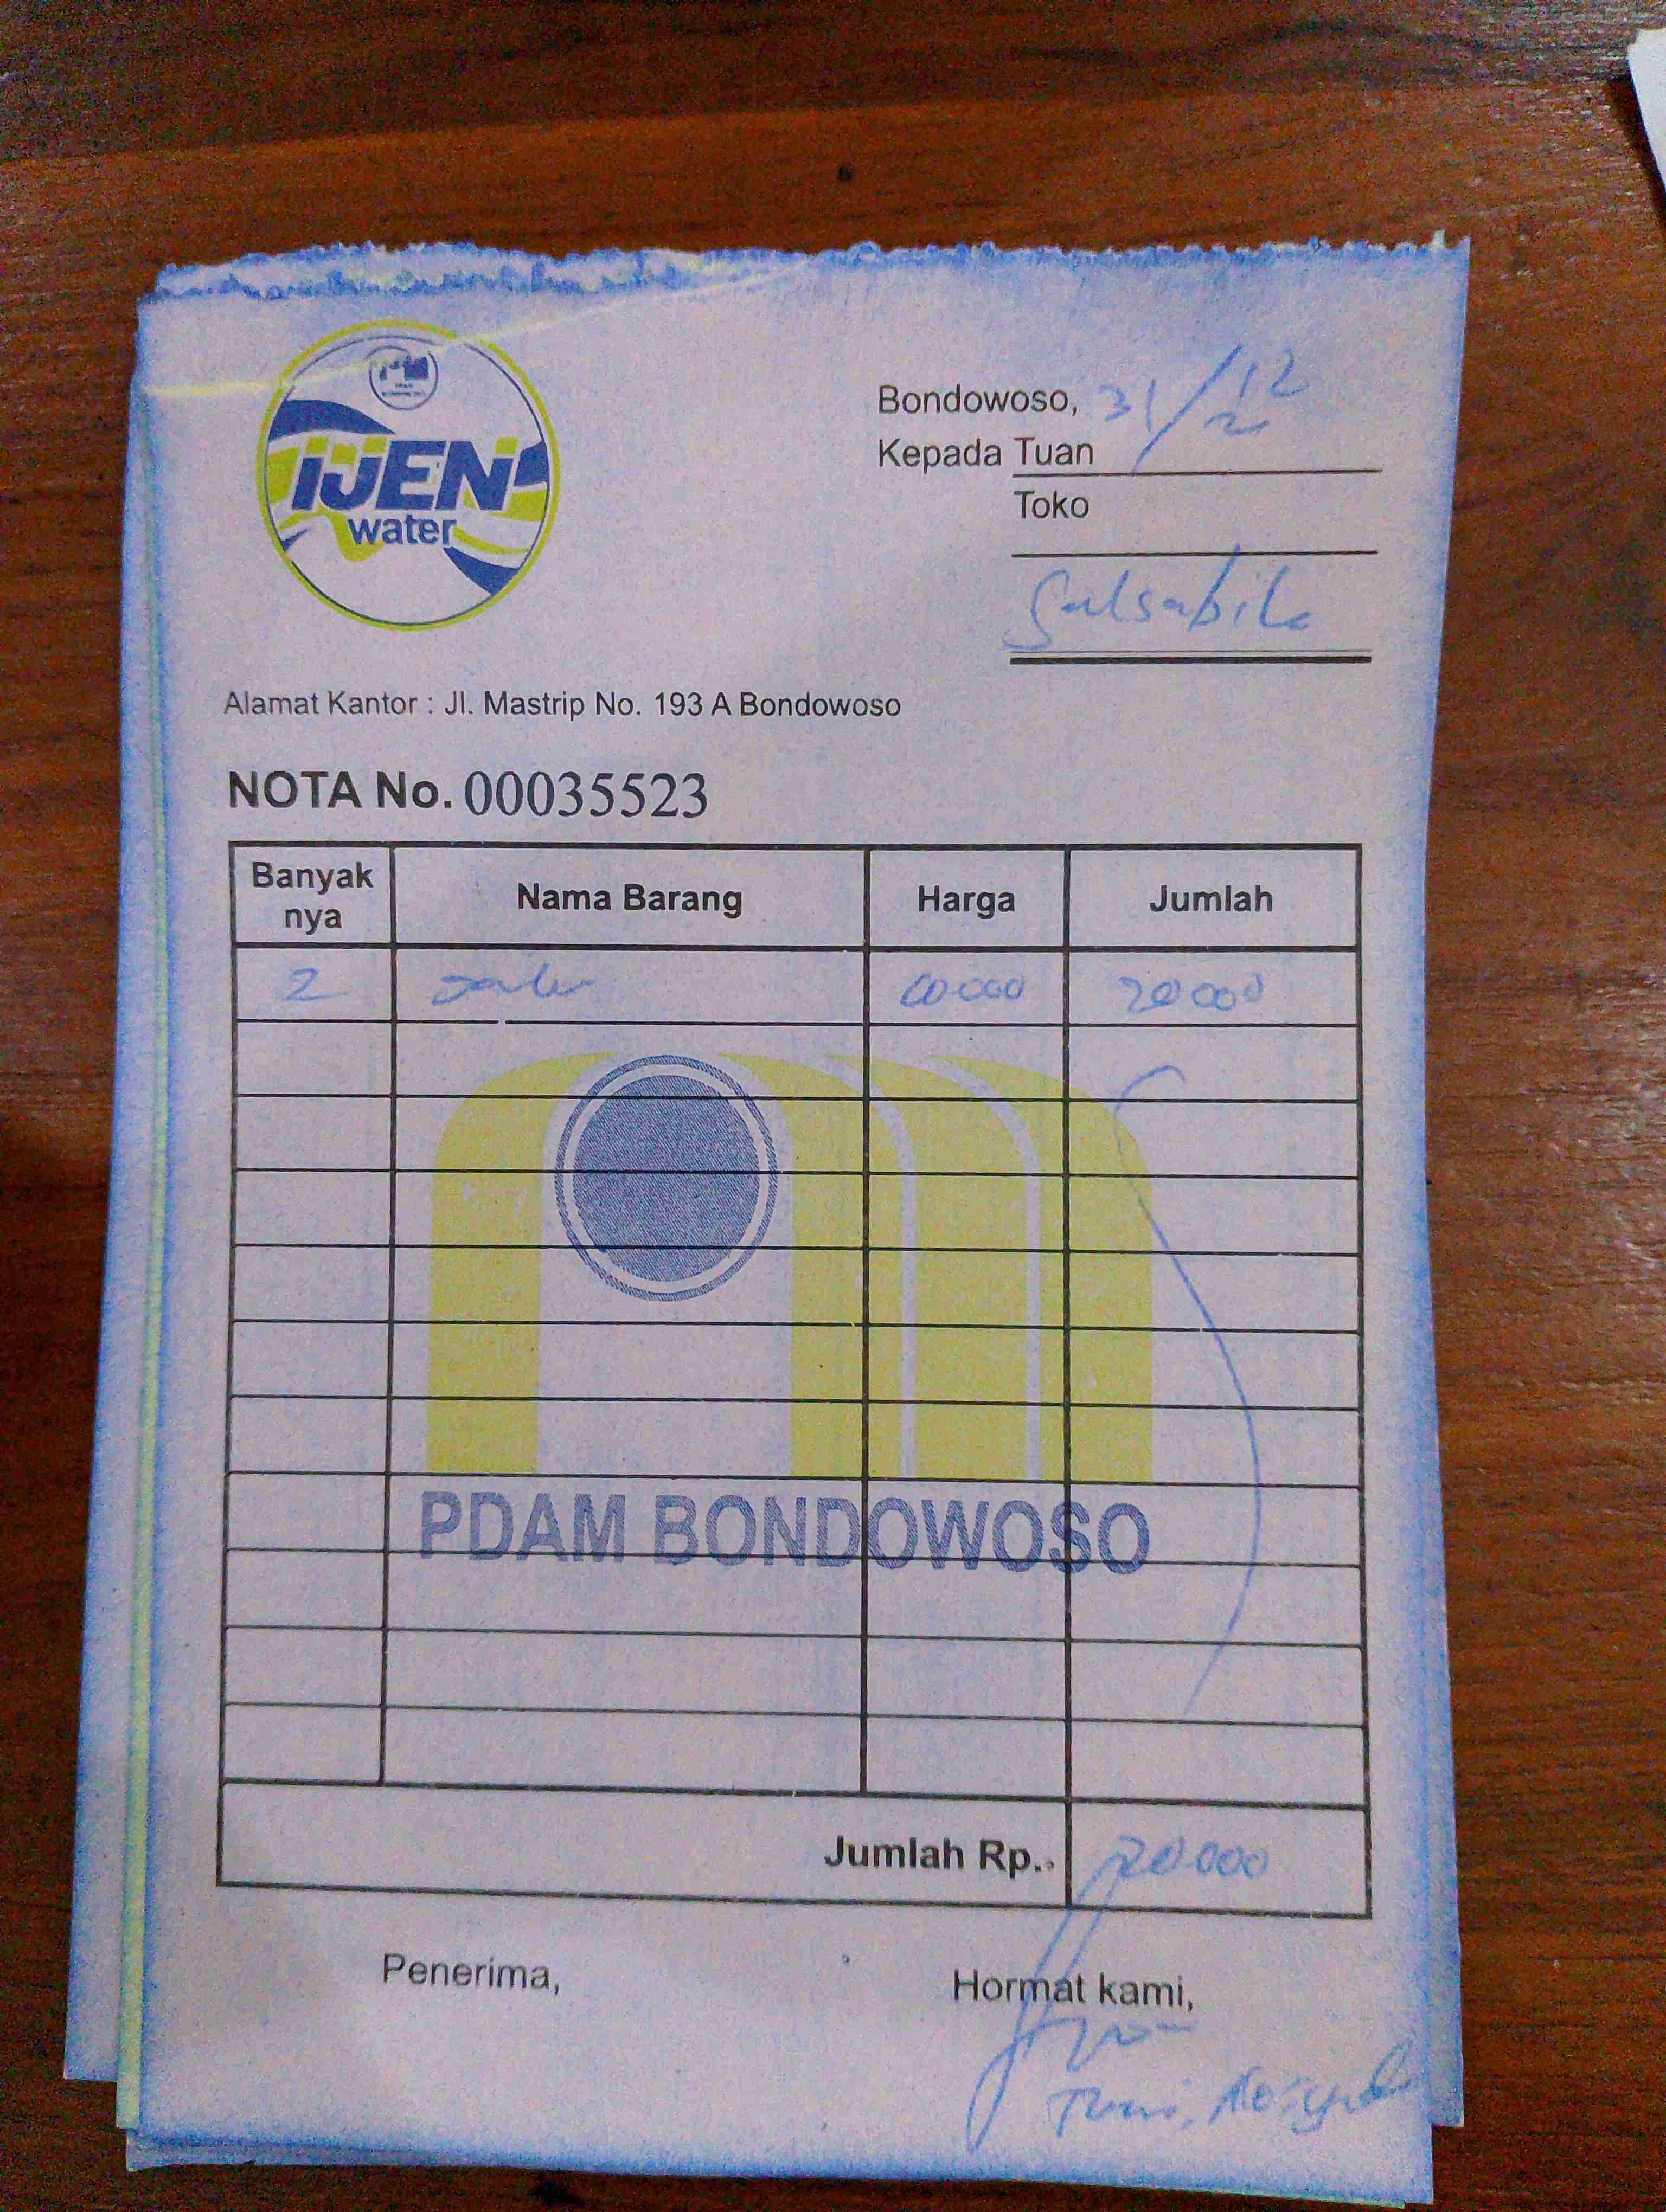 IJEN
water
Bondowoso, 31/12
Kepada Tuan
Toko
Salsabila
Alamat Kantor : Jl. Mastrip No. 193 A Bondowoso
NOTA No. 00035523
Banyak nya Nama Barang Harga Jumlah
2 10000 20000
PDAM BONDOWOSO
Jumlah Rp.. 20000
Penerima, Hormat kami,